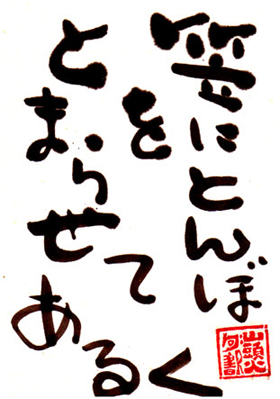 笠にとんぼ
を
とまらせて
あるく
山頭火